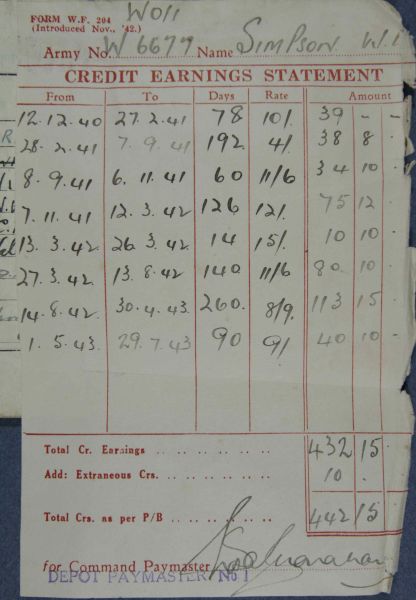 FORM W.F. 204 WO11
(Introduced Nov., '42.)
Army No. W 6677 Name SIMPSON W.J.
CREDIT EARNINGS STATEMENT
From To Days Rate Amount
12.12.40 27.2.41 78 10/. 39 - -
28.2.41 7.9.41 192 4/. 38 8 .
8.9.41 6.11.41 60 11/6 34 10 .
7.11.41 12.3.42 126 12/. 75 12 .
13.3.42 26.3.42 14 15/. 10 10 .
27.3.42 13.8.42 140 11/6 80 10 .
14.8.42 30.4.43 260. 8/9. 113 15 .
1.5.43. 29.7.43 90 9/. 40 10 .
Total Cr. Earnings .. .. .. .. .. .. 432 15 .
Add: Extraneous Crs. .. .. .. .. .. 10 .
Total Crs. as per P/B .. .. .. .. .. 442 15 .
for Command Paymaster
DEPOT PAYMASTER No 1